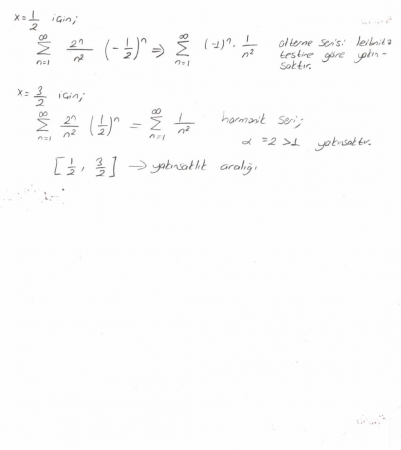 x = 1/2 için;
∞∑n=1 2ⁿ/n² (-1/2)ⁿ ⇒ ∞∑n=1 (-1)ⁿ · 1/n² alterne serisi leibnitz
testine göre yakın-
saktır.
x = 3/2 için;
∞∑n=1 2ⁿ/n² (1/2)ⁿ = ∞∑n=1 1/n² harmonik seri;
α = 2 > 1 yakınsaktır.
[1/2, 3/2] → yakınsaklık aralığı